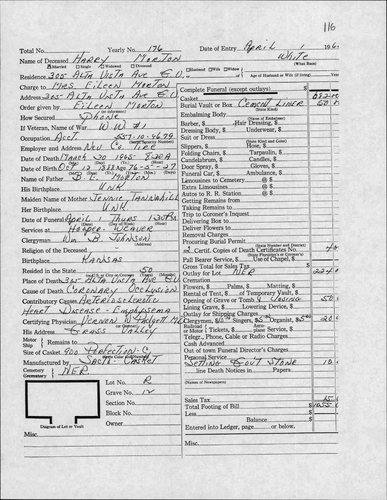 116
Total No. Yearly No. 176 Date of Entry APRIL 1 196
Name of Deceased HARRY MORTON White
Married Single Widowed Divorced Husband Wife Widow (What Race)
Residence 305 ALTA VISTA AVE G.V. Age of Husband or Wife (if living) Years
Charge to MRS EILEEN MORTON
Address 305 ALTA VISTA AVE G.V.
Order given by EILEEN MORTON
How Secured Phone
If Veteran, Name of War W.W. #1
Occupation ACCT. 557-10-4679
Employer and Address NEV CO. TIRE
Date of Death MARCH 30 1965 8:20A
Date of Birth 1888 Age 76-5-27
Name of Father B. E. MORTON
His Birthplace UNK
Maiden Name of Mother JENNIE TANNAHILL
Her Birthplace UNK
Date of Funeral APRIL 1 THURS 1:30 P.M.
Services at HOOPER-WEAVER
Clergyman Wm B. JOHNSON
Religion of the Deceased
Birthplace KANSAS
Resided in the State 50
Place of Death 305 ALTA VISTA AVE G.V.
Cause of Death CORONARY OCCLUSION
Contributory Causes ARTERIOSCLEROTIC
HEART DISEASE - EMPHYSEMA
Certifying Physician VERNON W. PADGETT M.D.
His Address GRASS VALLEY
Motor Ship Remains to
Size of Casket 900 PERFECTION-C
Manufactured by SACTO-CASKET
Cemetery Crematory NER
Lot No. R
Grave No. 12
Section No.
Block No.
Owner
Diagram of Lot or Vault
Misc.
Complete Funeral (except outlays) $
Casket
Burial Vault or Box CEMENT LINER
Embalming Body
(Name of Embalmer)
Barber, $ Hair Dressing, $
Dressing Body, $ Underwear, $
Suit or Dress
(State Kind and Color)
Slippers, $ Hose, $
Folding Chairs, $ Tarpaulin, $
Candelabrum, $ Candles, $
Door Spray, $ Gloves, $
Funeral Car, $ Ambulance, $
Limousines to Cemetery @ $
Extra Limousines @ $
Autos to R. R. Station @ $
Getting Remains from
Taking Remains to
Trip to Coroner's Inquest
Delivering Box to
Deliver Flowers to
Removal Charges
Procuring Burial Permit
(State Number and District)
2 Certif. Copies of Death Certificate No.
Pall Bearer Service, $ Use of Chapel, $
Gross Total for Sales Tax
Outlay for Lot NER
Cremation
Flowers, $ Palms, $ Matting, $
Rental of Tent, $ of Temporary Vault, $
Opening of Grave or Tomb & CLOSING
Outlay for Shipping Charges
Clergymen, $ Singers, $ Organist, $
Railroad or Motor Tickets, $ Aeroplane Service, $
Telgr., Phone, Cable or Radio Charges
Cash Advanced
Out of town Funeral Director's Charges
Personal Service
SETTING GOVT STONE
line Death Notices in Papers
(Names of Newspapers)
Sales Tax
Total Footing of Bill $
Less $
Balance $
Entered into Ledger, page or below.
Misc.